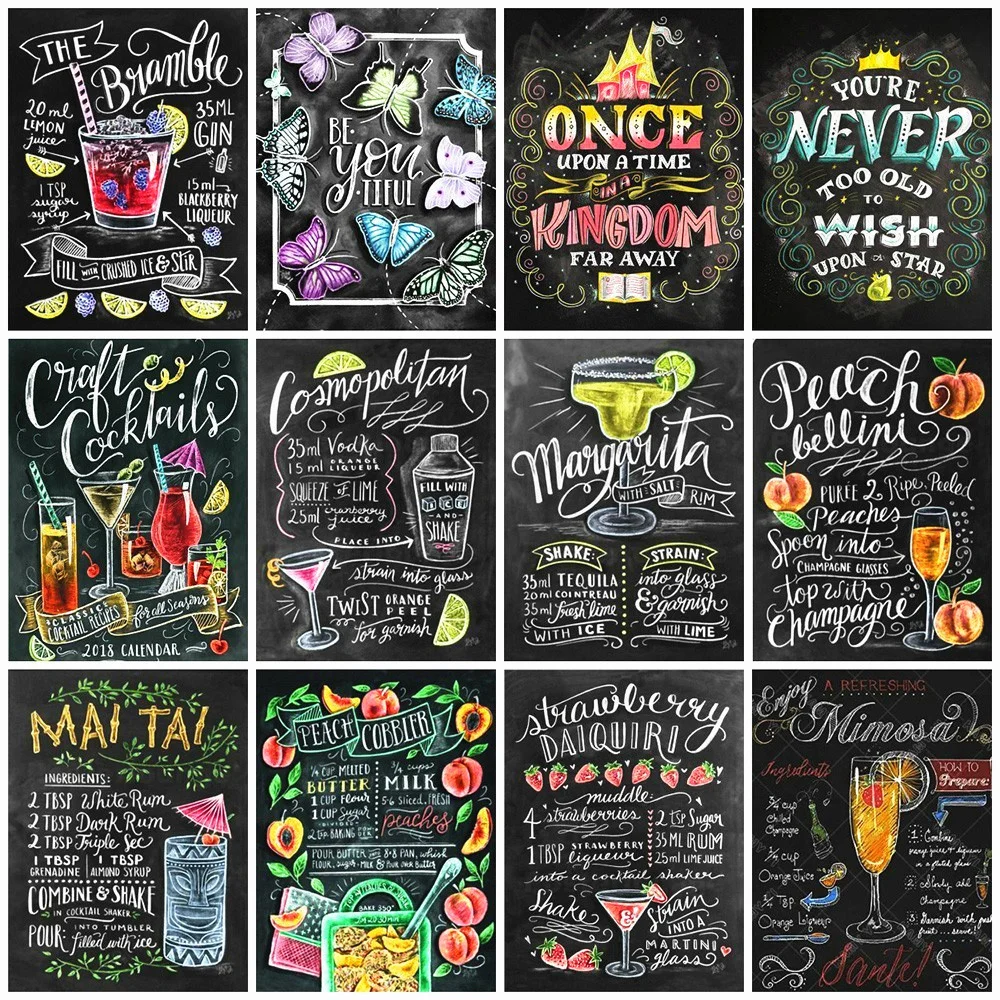 THE
Bramble
20 ml
LEMON
juice
35ML
GIN
1 TSP
sugar
syrup
15 ml
BLACKBERRY
LIQUEUR
FILL WITH CRUSHED ICE & STIR
BE
you
TIFUL
ONCE
UPON A TIME
IN A
KINGDOM
FAR AWAY
YOU'RE
NEVER
TOO OLD
TO
WISH
UPON A STAR
Craft
Cocktails
CLASSIC
COCKTAIL RECIPES
for all Seasons
2018 CALENDAR
Cosmopolitan
35ml Vodka
15ml ORANGE LIQUEUR
SQUEEZE OF LIME
25ml cranberry juice
PLACE INTO
FILL WITH
ICE
-AND-
SHAKE
strain into glass
TWIST ORANGE PEEL
for garnish
Margarita
WITH SALT RIM
SHAKE:
35ml TEQUILA
20ml COINTREAU
35ml fresh lime
WITH ICE
STRAIN:
into glass
& garnish
WITH LIME
Peach
bellini
PUREE 2 Ripe, Peeled
Peaches
Spoon into
CHAMPAGNE GLASSES
top with
Champagne
MAI TAI
INGREDIENTS:
2 TBSP White Rum
2 TBSP Dark Rum
2 TBSP Triple Sec
1 TBSP GRENADINE
1 TBSP ALMOND SYRUP
COMBINE & SHAKE
IN COCKTAIL SHAKER
POUR: INTO TUMBLER filled with ice
PEACH COBBLER
1/4 CUP MELTED
BUTTER
1 CUP Flour
1 CUP Sugar
DIVIDED
3/4 cups
MILK
5-6 sliced, FRESH
peaches
POUR BUTTER 8x8 PAN, whisk
FLOUR, sugar, MILK & POUR OVER Butter
BAKE 350°
strawberry
DAIQUIRI
muddle
4 strawberries
1 TBSP STRAWBERRY liqueur
2 TSP Sugar
35 ML RUM
25ml LIME JUICE
into a cocktail shaker
Shake
&
Strain
INTO A
MARTINI
glass
Enjoy
A REFRESHING
Mimosa
Ingredients
HOW TO
Prepare:
3/4 cup
Chilled
Champagne
1/4 cup
Orange Juice
Orange Liqueur
1: Combine
2: Slowly add
Champagne
3: Garnish with
fruit ... serve!
Santé!